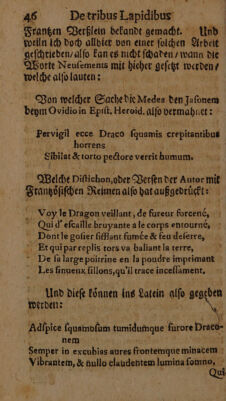 46 De tribus Lapidibus
Frantzen Verßlein bekandt gemacht. Und
weiln ich doch allhier von einer solchen Arbeit
geschrieben/ also kan es nicht schaden/ wann die
Worte Neusements mit hieher gesetzt werden/
welche also lauten:
Von welcher Sache die Medea den Jasonem
beym Ovidio in Epist. Heroid. also vermahnet:
Pervigil ecce Draco squamis crepitantibus
horrens
Sibilat & torto pectore verrit humum.
Welche Distichon, oder Versen der Autor mit
Frantzösischen Reimen also hat außgedrückt:
Voy le Dragon veillant, de fureur forcené,
Qui d' escaille bruyante a le corps entourné,
Dont le gosier sifflant fumée & feu desserre,
Et qui par replis tors va baliant la terre,
De sa large poitrine en la poudre imprimant
Les sinueux sillons, qu'il trace incessament.
Und diese können ins Latein also gegeben
werden:
Adspice squamosum tumidumque furore Draco-
nem
Semper in excubias aures frontemque minacem
Vibrantem, & nullo claudentem lumina somno,
Qui